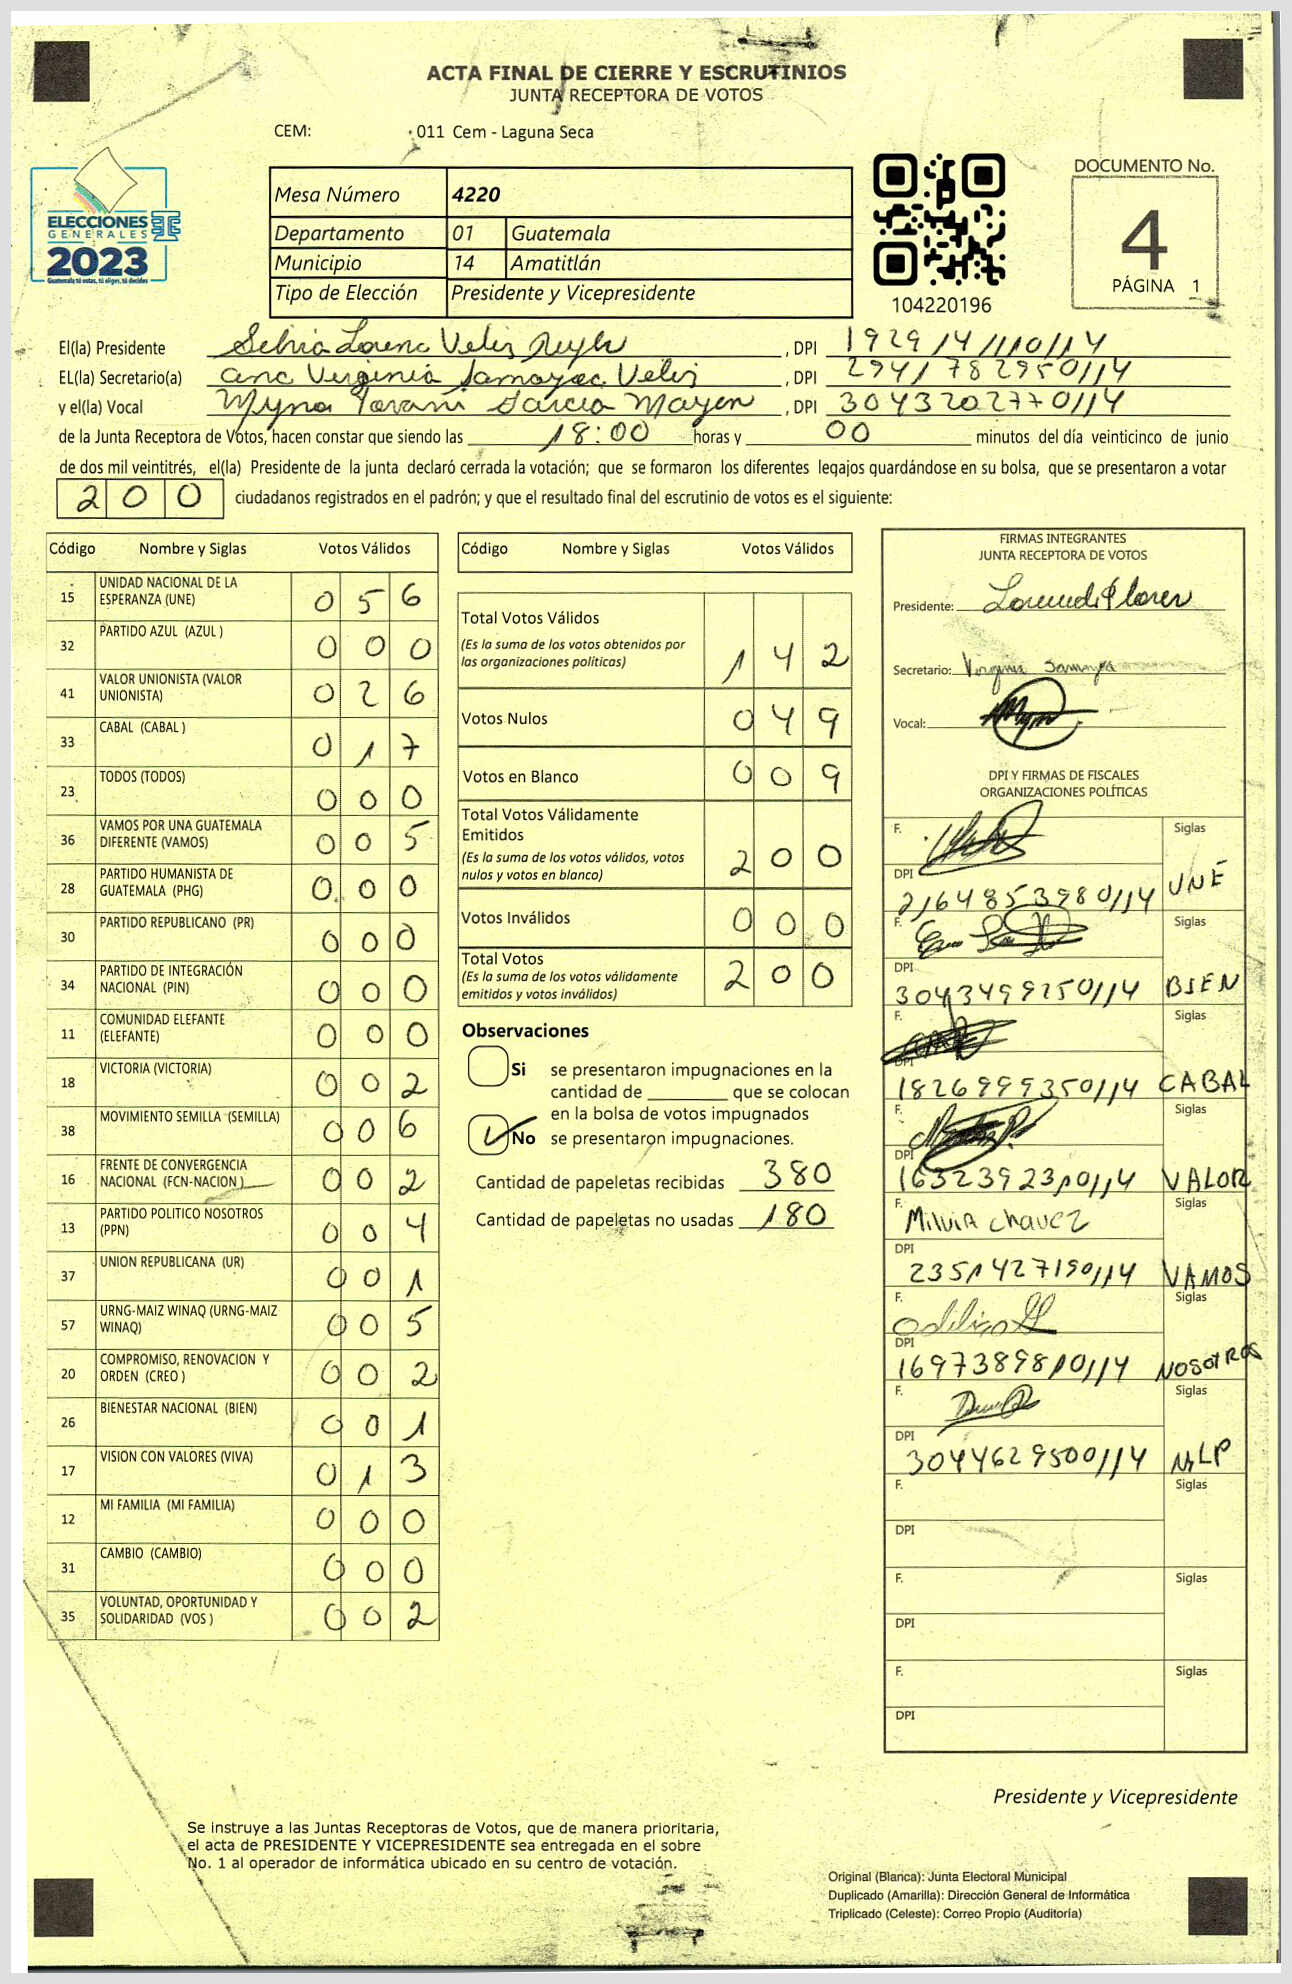 ACTA FINAL DE CIERRE Y ESCRUTINIOS
JUNTA RECEPTORA DE VOTOS
CEM: 011 Cem - Laguna Seca
ELECCIONES
GENERALES
2023
Guatemala tú votas, tú eliges, tú decides
Mesa Número 4220
Departamento 01 Guatemala
Municipio 14 Amatitlán
Tipo de Elección Presidente y Vicepresidente
104220196
DOCUMENTO No.
4
PÁGINA 1
El(la) Presidente , DPI
EL(la) Secretario(a) Virginia Samayoa Veliz , DPI 2941 78295 0114
y el(la) Vocal García Mayen , DPI 3043202770114
de la Junta Receptora de Votos, hacen constar que siendo las 18:00 horas y 00 minutos del día veinticinco de junio
de dos mil veintitrés, el(la) Presidente de la junta declaró cerrada la votación; que se formaron los diferentes legajos guardándose en su bolsa, que se presentaron a votar
200 ciudadanos registrados en el padrón; y que el resultado final del escrutinio de votos es el siguiente:
Código Nombre y Siglas Votos Válidos
15 UNIDAD NACIONAL DE LA ESPERANZA (UNE) 0 5 6
32 PARTIDO AZUL (AZUL ) 0 0 0
41 VALOR UNIONISTA (VALOR UNIONISTA) 0 2 6
33 CABAL (CABAL ) 0 1 7
23 TODOS (TODOS) 0 0 0
36 VAMOS POR UNA GUATEMALA DIFERENTE (VAMOS) 0 0 5
28 PARTIDO HUMANISTA DE GUATEMALA (PHG) 0 0 0
30 PARTIDO REPUBLICANO (PR) 0 0 0
34 PARTIDO DE INTEGRACIÓN NACIONAL (PIN) 0 0 0
11 COMUNIDAD ELEFANTE (ELEFANTE) 0 0 0
18 VICTORIA (VICTORIA) 0 0 2
38 MOVIMIENTO SEMILLA (SEMILLA) 0 0 6
16 FRENTE DE CONVERGENCIA NACIONAL (FCN-NACION ) 0 0 2
13 PARTIDO POLITICO NOSOTROS (PPN) 0 0 4
37 UNION REPUBLICANA (UR) 0 0 1
57 URNG-MAIZ WINAQ (URNG-MAIZ WINAQ) 0 0 5
20 COMPROMISO, RENOVACION Y ORDEN (CREO ) 0 0 2
26 BIENESTAR NACIONAL (BIEN) 0 0 1
17 VISION CON VALORES (VIVA) 0 1 3
12 MI FAMILIA (MI FAMILIA) 0 0 0
31 CAMBIO (CAMBIO) 0 0 0
35 VOLUNTAD, OPORTUNIDAD Y SOLIDARIDAD (VOS ) 0 0 2
Código Nombre y Siglas Votos Válidos
Total Votos Válidos
(Es la suma de los votos obtenidos por
las organizaciones políticas) 1 4 2
Votos Nulos 0 4 9
Votos en Blanco 0 0 9
Total Votos Válidamente
Emitidos
(Es la suma de los votos válidos, votos
nulos y votos en blanco) 2 0 0
Votos Inválidos 0 0 0
Total Votos
(Es la suma de los votos válidamente
emitidos y votos inválidos) 2 0 0
Observaciones
Si se presentaron impugnaciones en la
cantidad de ________ que se colocan
en la bolsa de votos impugnados
No se presentaron impugnaciones.
Cantidad de papeletas recibidas 380
Cantidad de papeletas no usadas 180
FIRMAS INTEGRANTES
JUNTA RECEPTORA DE VOTOS
Presidente:
Secretario: Virginia Samayoa
Vocal:
DPI Y FIRMAS DE FISCALES
ORGANIZACIONES POLÍTICAS
F. Siglas
DPI 2164853980114 UNE
F. Siglas
DPI 3043499250114 BIEN
F. Siglas
DPI 1826999350114 CABAL
F. Siglas
DPI 1632392310114 VALOR
F. Milvia Chavez Siglas
DPI 2351427190114 VAMOS
F. Siglas
DPI 1697389810114 NOSOTROS
F. Siglas
DPI 3044629500114 MLP
F. Siglas
DPI
F. Siglas
DPI
F. Siglas
DPI
Presidente y Vicepresidente
Se instruye a las Juntas Receptoras de Votos, que de manera prioritaria,
el acta de PRESIDENTE Y VICEPRESIDENTE sea entregada en el sobre
No. 1 al operador de informática ubicado en su centro de votación.
Original (Blanca): Junta Electoral Municipal
Duplicado (Amarilla): Dirección General de Informática
Triplicado (Celeste): Correo Propio (Auditoría)